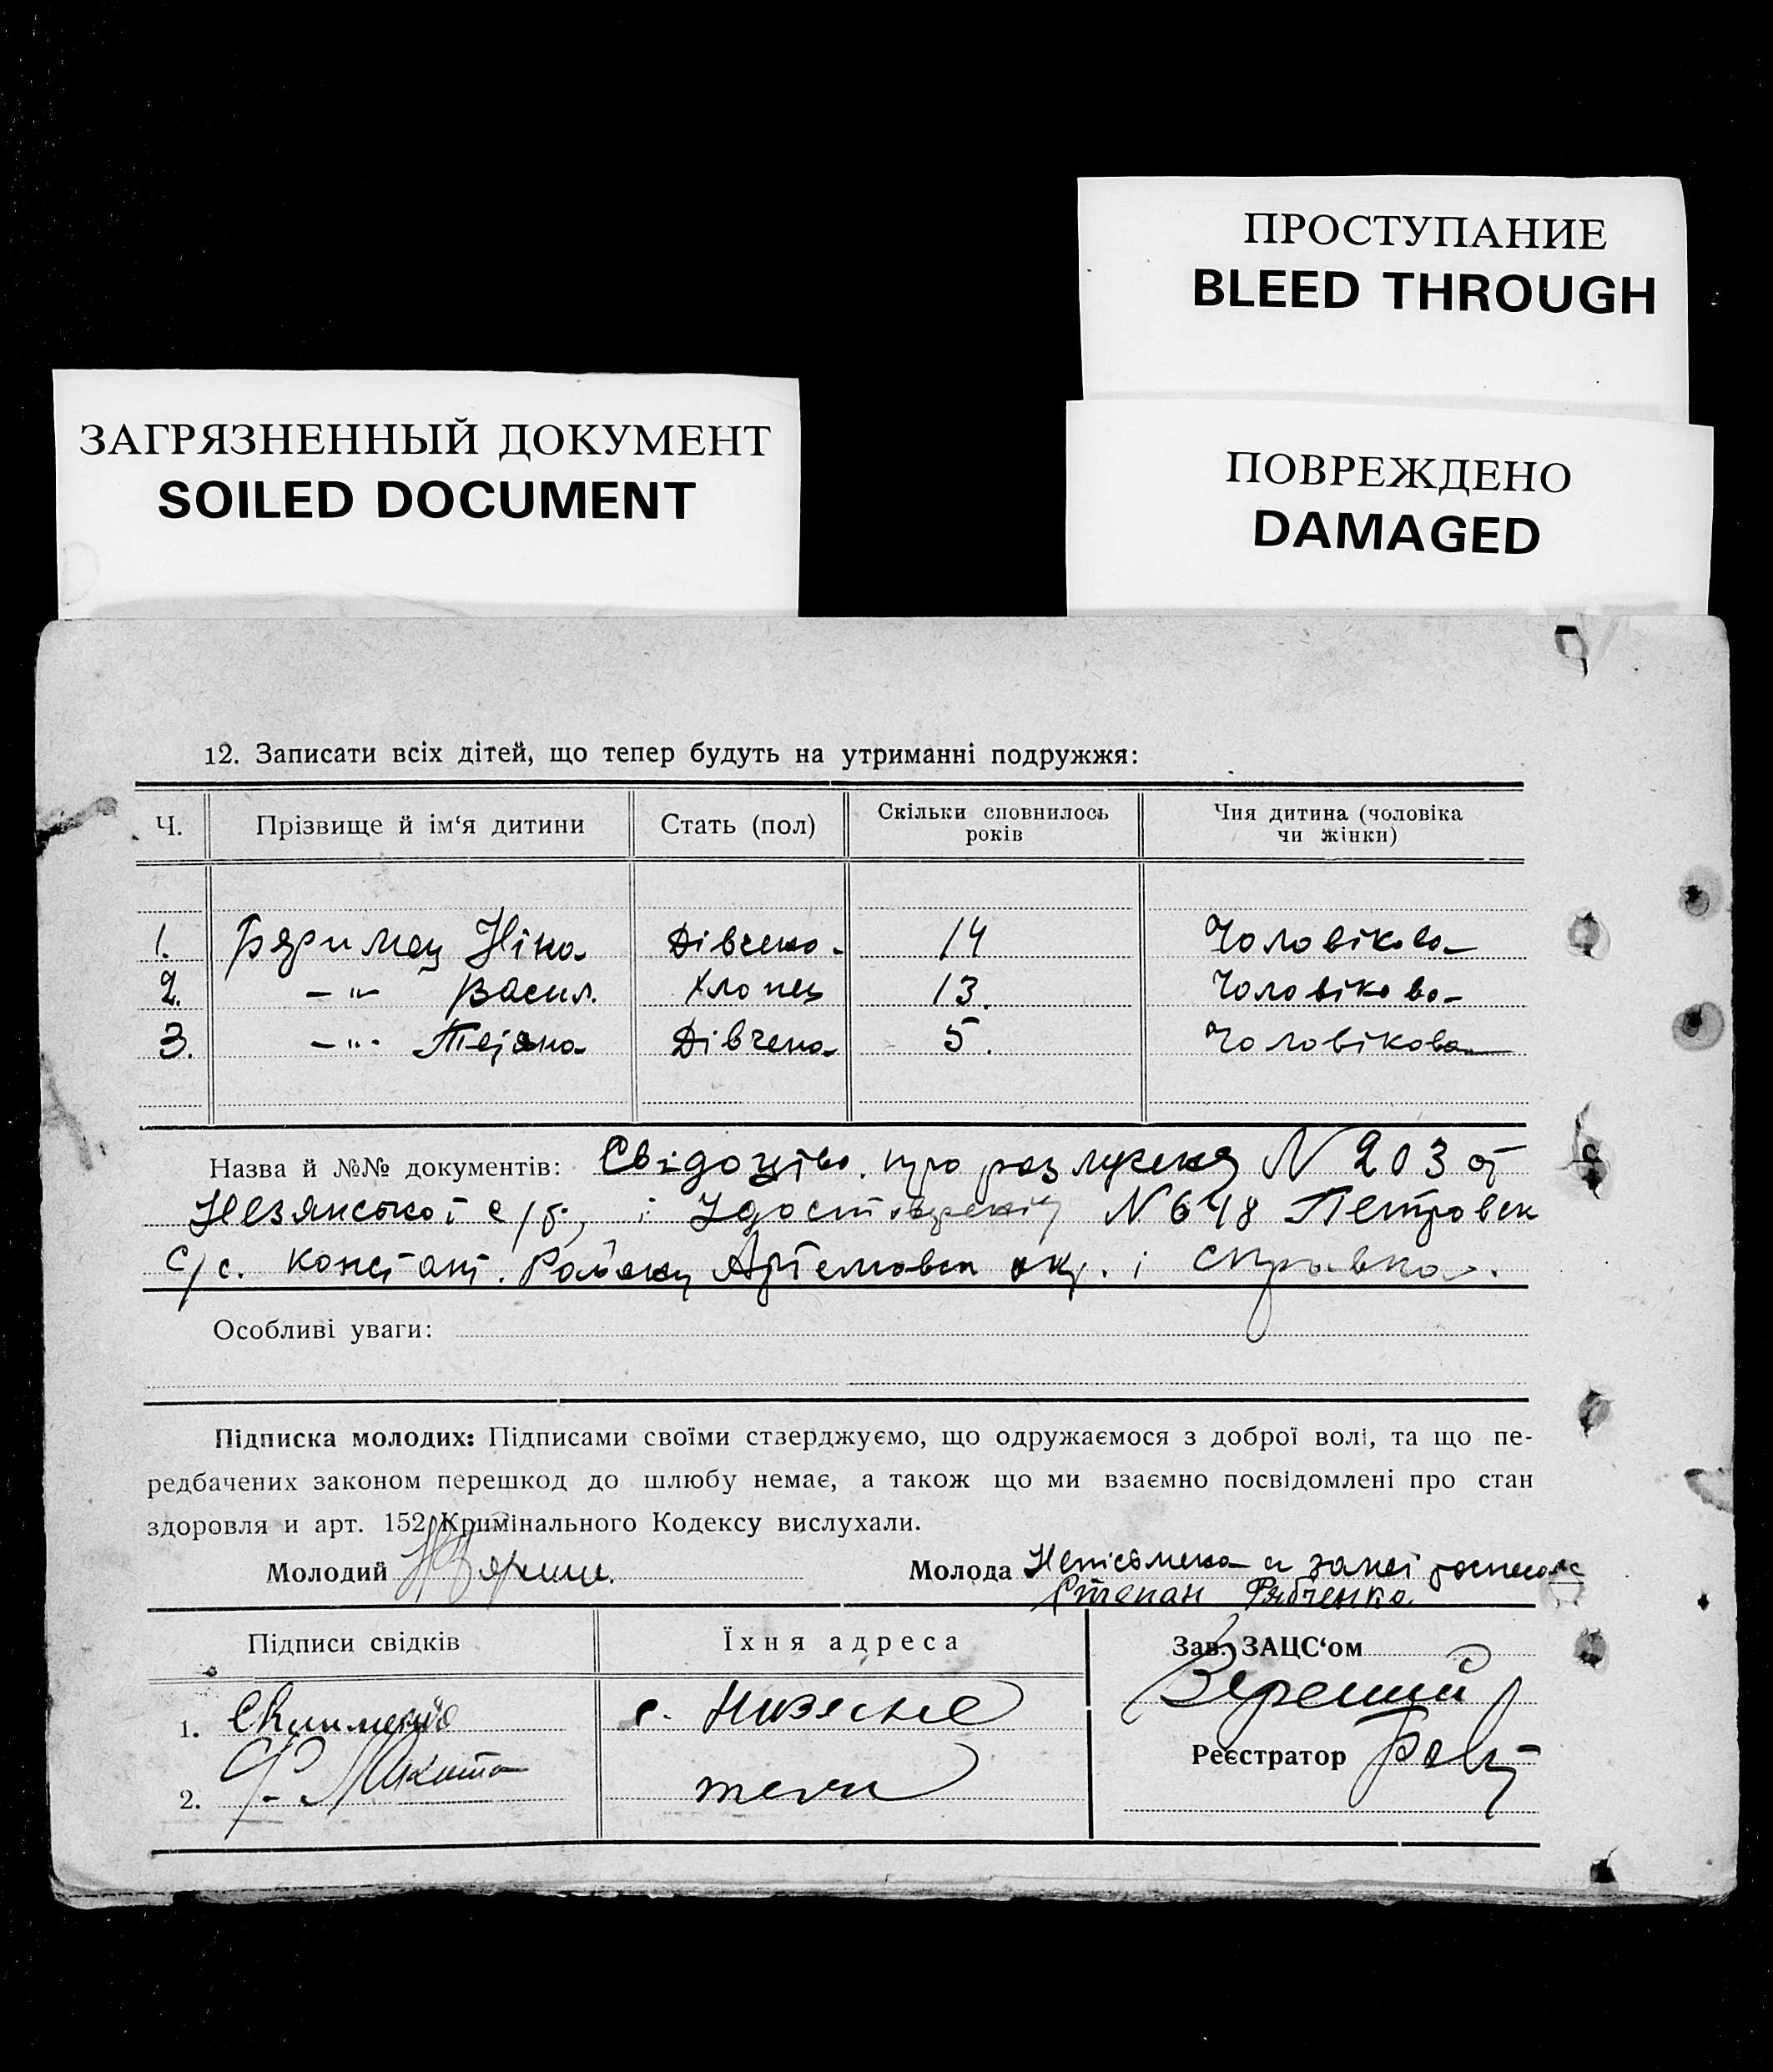 ПРОСТУПАНИЕ
BLEED THROUGH
ЗАГРЯЗНЕННЫЙ ДОКУМЕНТ
SOILED DOCUMENT
ПОВРЕЖДЕНО
DAMAGED
12. Записати всіх дітей, що тепер будуть на утриманні подружжя:
Ч. Прізвище й ім‘я дитини Стать (пол) Скільки сповнилось років Чия дитина (чоловіка чи жінки)
1. Ніна Дівчена 14 Чоловікова
2. -"- Васил. Хлопец 13. Чоловікова
3. -"- Дівчена 5. Чоловікова
Назва й №№ документів: Свідоцтво про N 203 от
с/р, і N 648 Петровск
с/с. Констант. Району Артемовск окр. і справка.
Особливі уваги:
Підписка молодих: Підписами своїми стверджуємо, що одружаємося з доброї волі, та що пе-
редбачених законом перешкод до шлюбу немає, а також що ми взаємно посвідомлені про стан
здоровля и арт. 152 Кримінального Кодексу вислухали.
Молодий Молода Непісьмена
Степан Рябченко
Підписи свідків Їхня адреса Зав. ЗАЦС‘ом
1. с.
Реєстратор
2. Микита